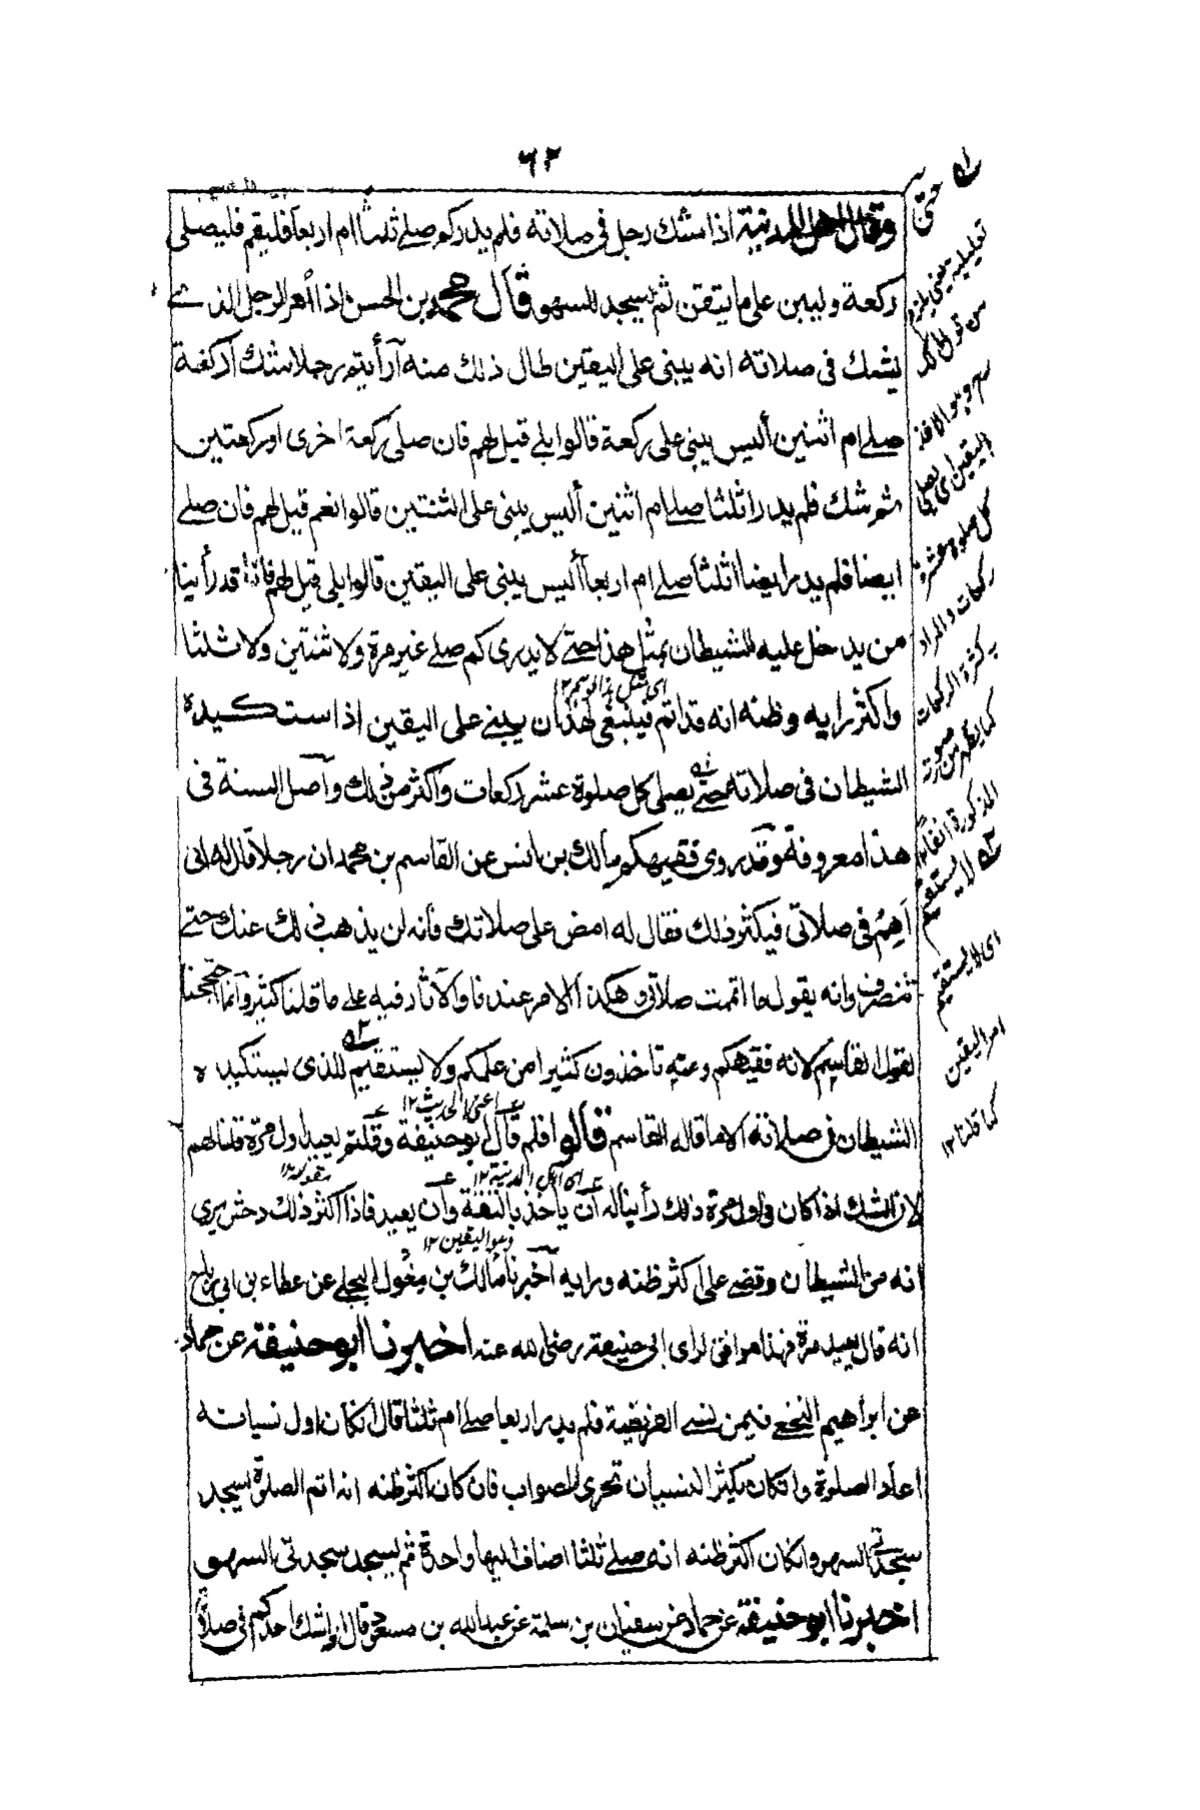 ٦٢
وقال اهل المدينة اذا شك رجل فى صلاته فلم يدر كم صلے ثلثا ام اربعا فليقم فليصلى
ركعة وليبن على ما يتقن ثم يسجد للسهو قال محمد بن الحسن اذا لعر الرجل الذے
يشك فى صلاته انه يبنى على اليقين طال ذلك منه أرأيتم رجلا شك آركعة
صلے ام اثنين أليس يبنى على ركعة قالوا بلے قيل لهم فان صلى ركعة اخرى او ركعتين
ثم شك فلم يدر اثلثا صلے ام اثنين أليس يبنى على الثنتين قالوا نعم قيل لهم فان صلے
ايضا فلم يدر ايضا اثلثا صلے ام اربعا أليس يبنى على اليقين قالوا بلى قيل لهم فانا قد رأينا
من يدخل عليه الشيطان بمثل هذا حتے لا يدرى كم صلے غير مرة ولا ثنتين ولا ثلثا
اى شك
واكثر رايه وظنه انه قد اتم فينبغى لهذا ان يبنے على اليقين اذا استكيده
الشيطان فى صلاته حتے يصلى كل صلوة عشر ركعات واكثر من ذلك وأصل السنة فى
هذا معروفة وقد روى فقيهكم مالك بن انس عن القاسم بن محمد ان رجلا قال له انى
أهم فى صلاتى فيكثر ذلك فقال له امض على صلاتك فانه لن يذهب ذلك عنك حتے
تنصرف وانه يقول ما اتممت صلاتى وهكذا الامر عندنا والآثار فيه على ما قلنا كثير وانما احتججنا
بقول القاسم لانه فقيهكم وعنه تاخذون كثيرا من علمكم ولا يستقيم للذى يستكيده
اعنى الحديث ١٢
الشيطان فى صلاته الا ما قاله القاسم قالوا فلم قال ابو حنيفة وقلتم يعيد اول مرة قلنا لهم
اى اهل المدينة ١٢
لان الشك اذا كان فى اول مرة ذلك رأينا له أن ياخذ بالثقة وأن يعيد فاذا كثر ذلك حتى يرى
وهو اليقين ١٢
انه من الشيطان وقضے على اكثر ظنه ورايه أخبرنا مالك بن مغول البجلے عن عطاء بن ابى رباح
انه قال يعيد مرة فهذا موافق لراى ابى حنيفة رضى الله عنه اخبرنا ابو حنيفة عن حماد
عن ابراهيم النخعے فيمن نسے الفريضة فلم يدر اربعا صلے ام ثلثا قال ان كان اول نسيانه
اعاد الصلوة وان كان يكثر النسيان تحرى الصواب فان كان اكثر ظنه انه اتم الصلوة سجد
سجدتے السهو وان كان اكثر ظنه انه صلے ثلثا اضاف اليها واحدة ثم يسجد سجدتى السهو
اخبرنا ابو حنيفة عن حماد عن سفيان بن سلمة عن عبد الله بن مسعود قال اذا شك احدكم فى صلاة
حتى
تعليلية يعنى يلزم
من قول مالك
وهو الاخذ
اليقين اى يصلى
كل صلوة عشرة
ركعات والمراد
كثرة الركعات
كما يظهر من صورة
المذكورة آنفا
لا يستقيم
اى لا يستقيم
امر اليقين
كما قلنا ١٢